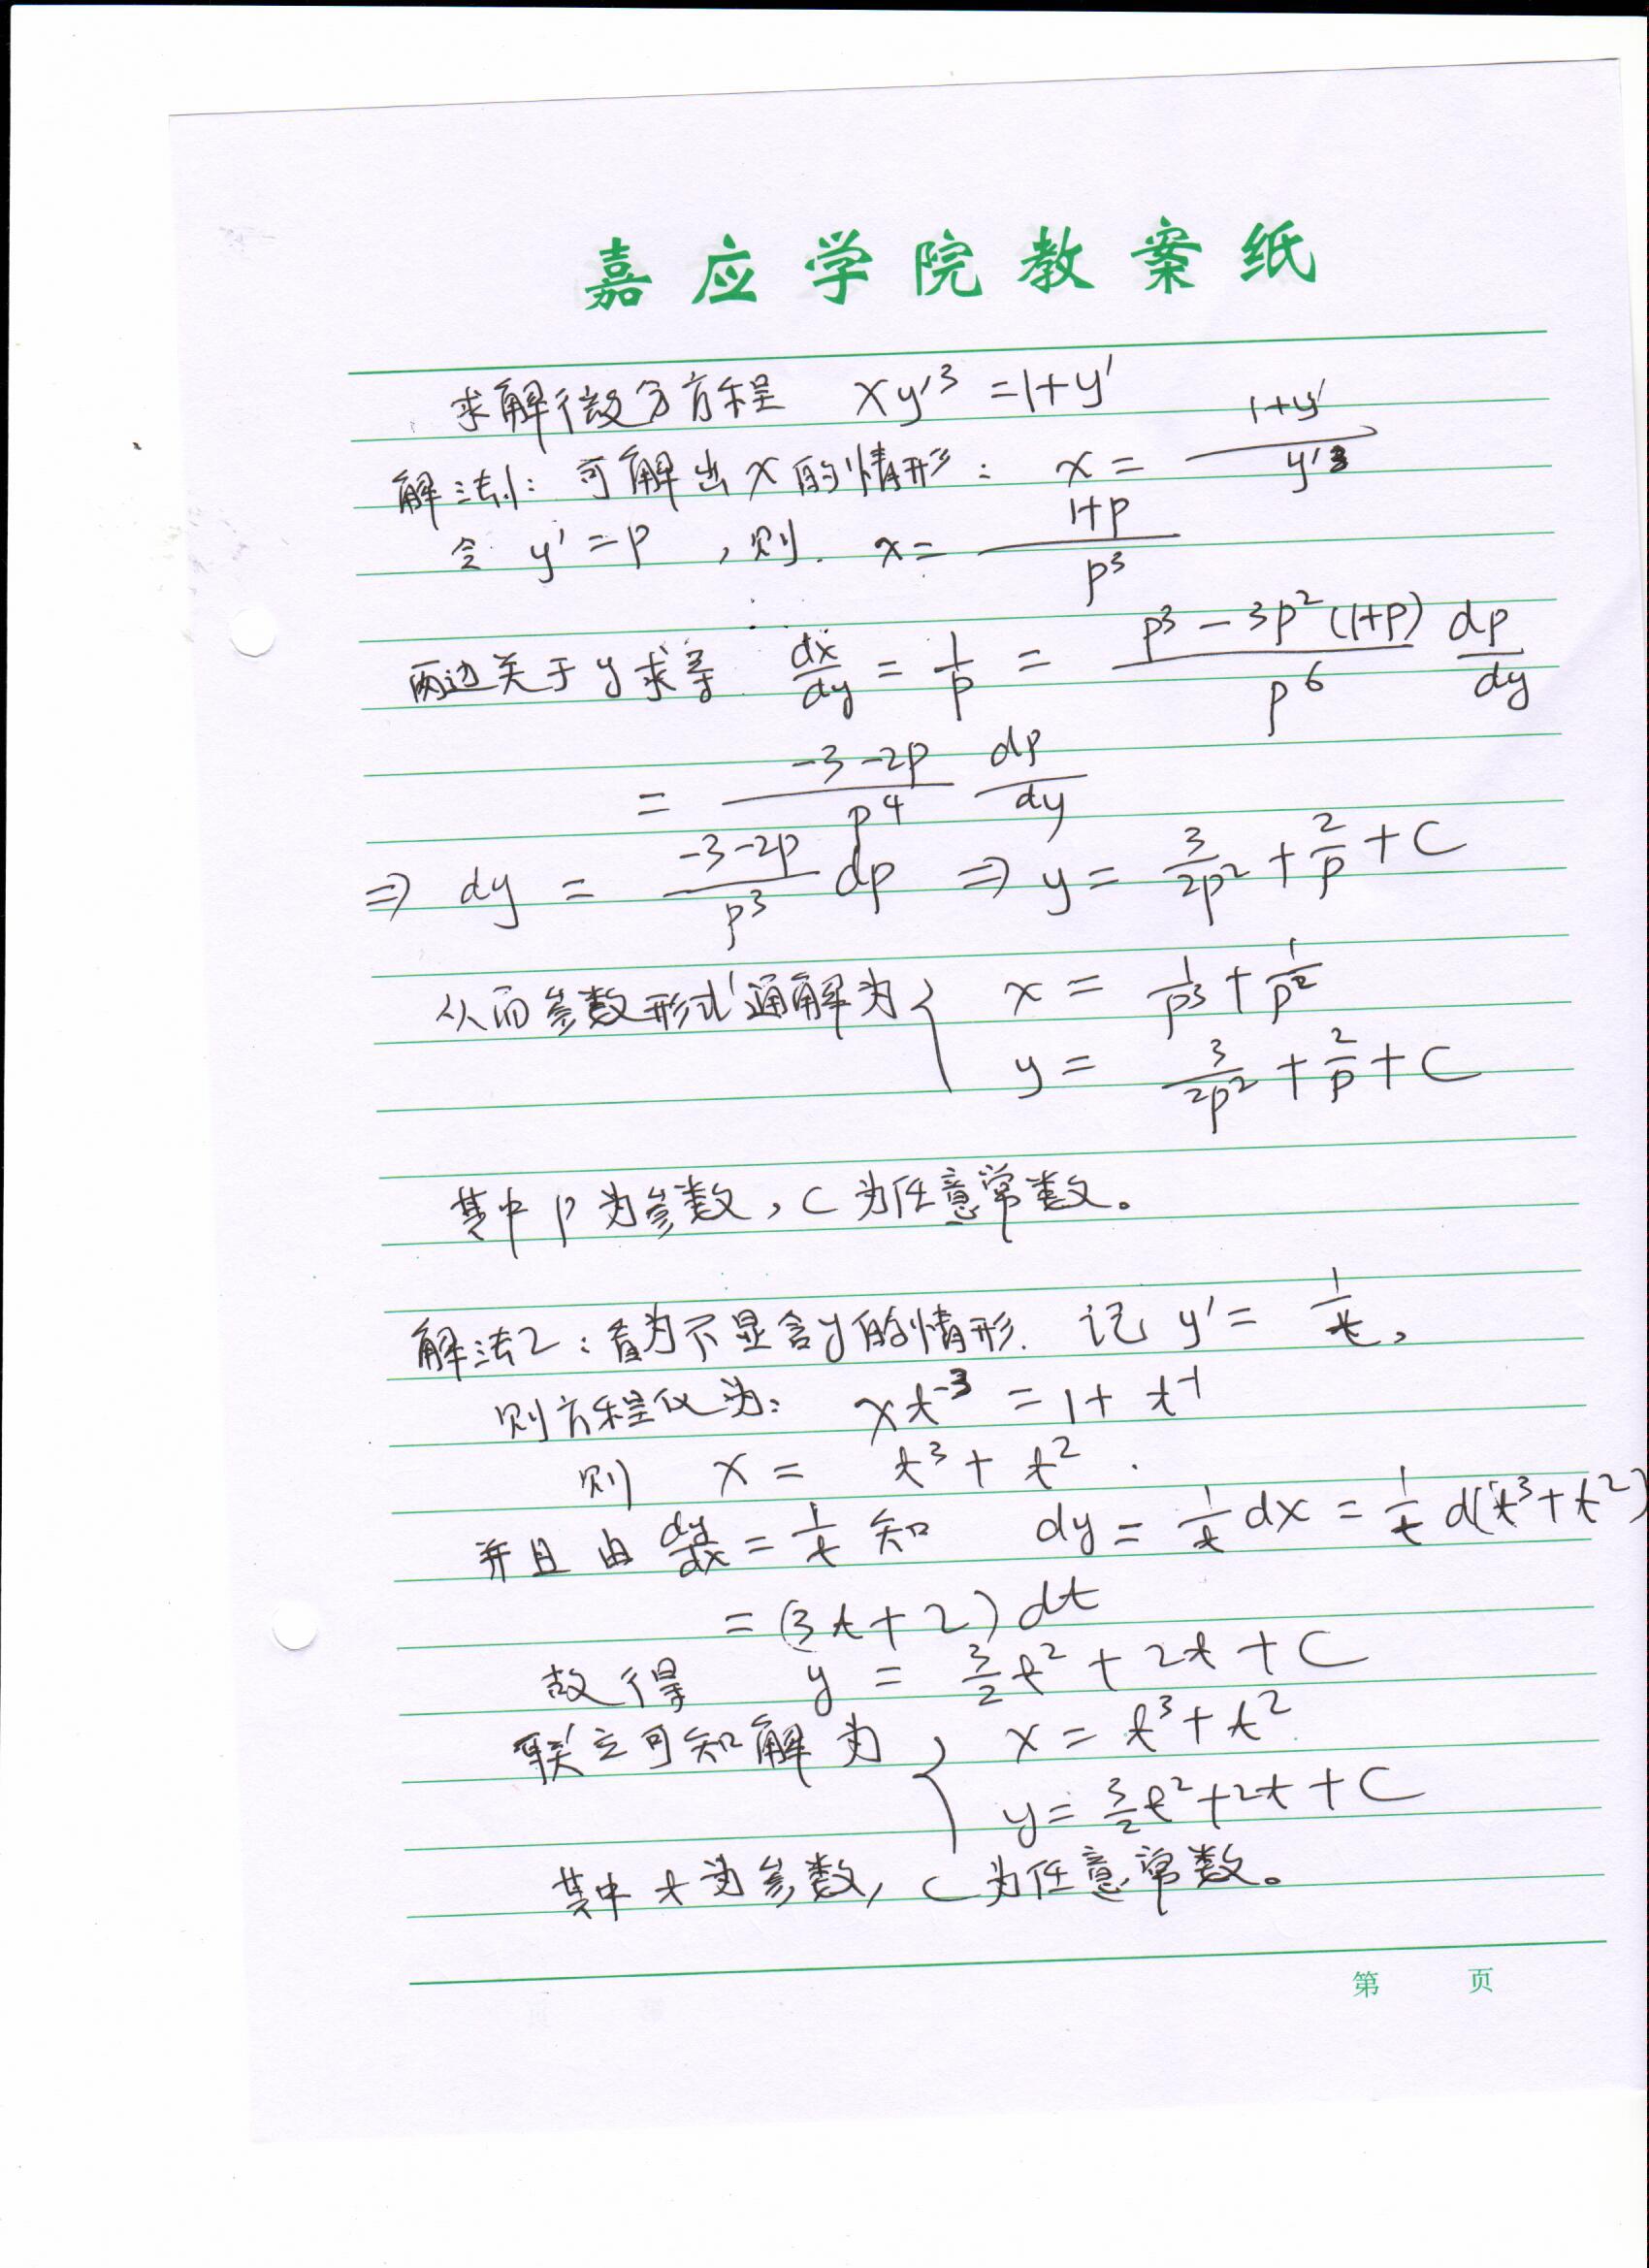 嘉应学院教案纸
求解微分方程 xy'³ = 1+y'
解法1: 可解出x的情形: x = (1+y')/y'³
令 y' = p , 则. x = (1+p)/p³
两边关于y求导 dx/dy = 1/p = (p³ - 3p²(1+p))/p⁶ dp/dy
= (-3-2p)/p⁴ dp/dy
⇒ dy = (-3-2p)/p³ dp ⇒ y = 3/(2p²) + 2/p + C
从而参数形式通解为 { x = 1/p³ + 1/p²
y = 3/(2p²) + 2/p + C
其中p为参数, C为任意常数。
解法2: 看为不显含y的情形. 记 y' = 1/t,
则方程化为: xt⁻³ = 1 + t⁻¹
则 x = t³ + t² .
并且由 dy/dx = 1/t 知 dy = 1/t dx = 1/t d(t³+t²)
= (3t+2)dt
故得 y = 3/2 t² + 2t + C
联立可知解为 { x = t³ + t²
y = 3/2 t² + 2t + C
其中t为参数, C为任意常数。
第 页